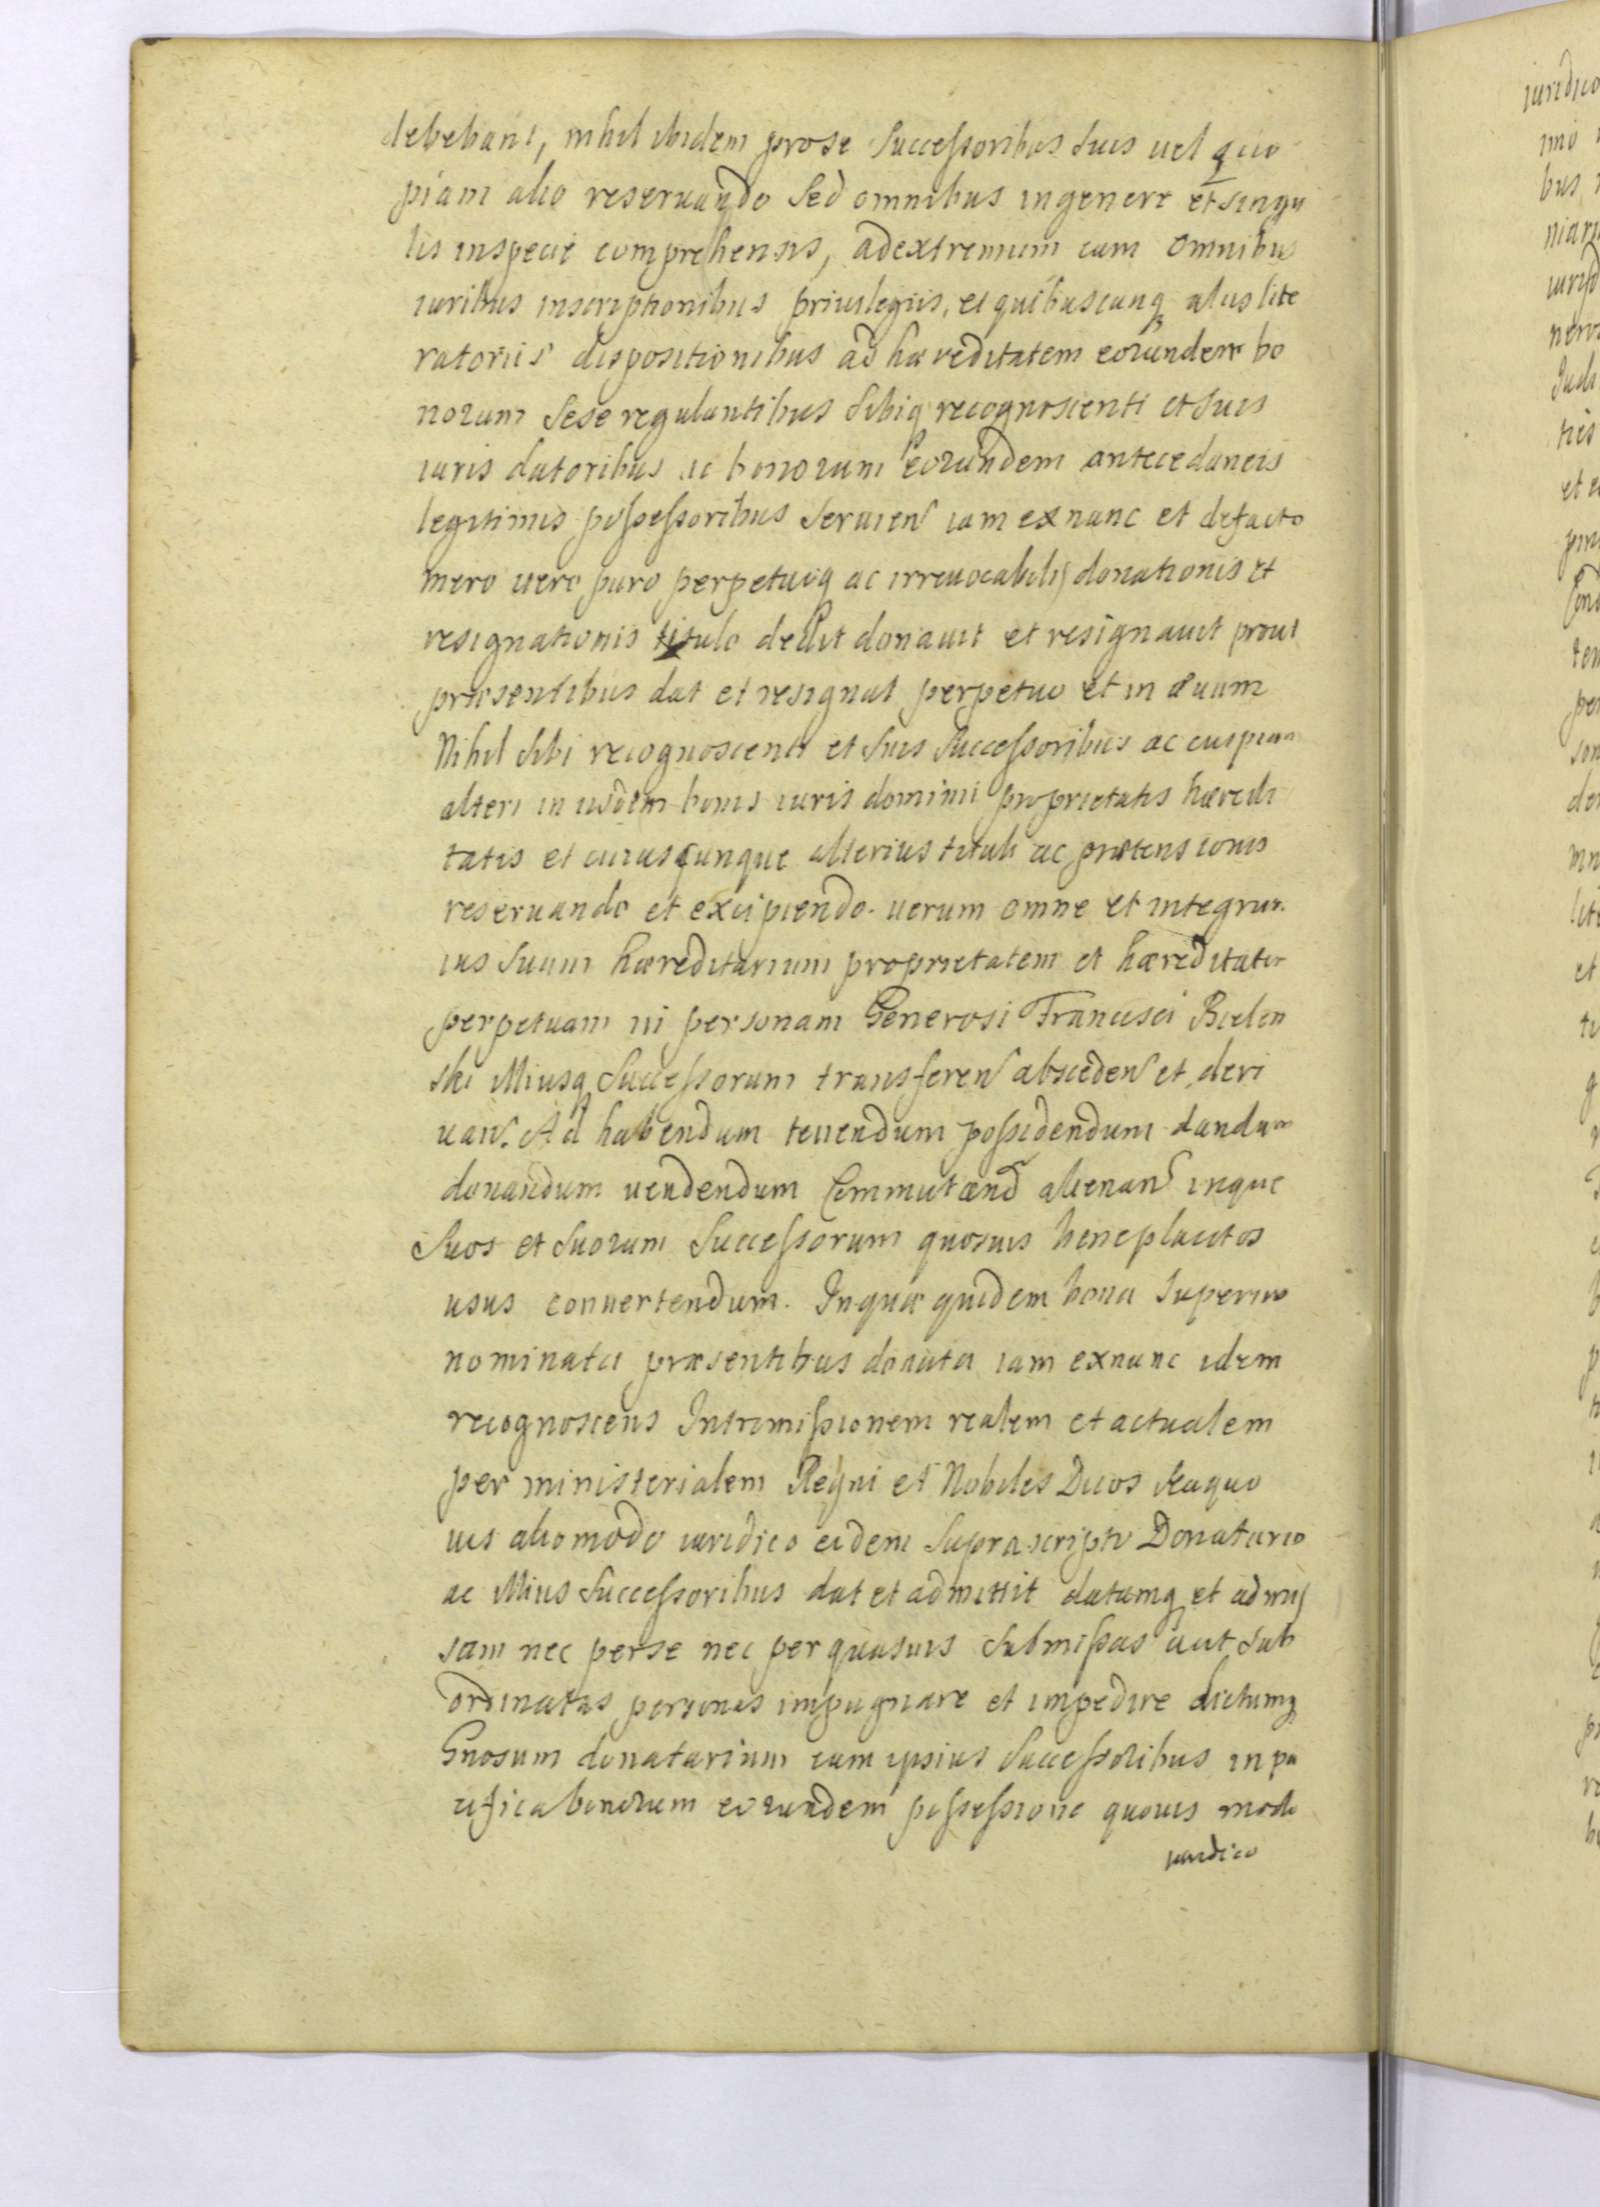 debebant, nihil ibidem prose Successoribus Suis uel quo
piam alio reseruando Sed omnibus ingenere et singu
lis inspecie comprehensis, adextremum cum omnibus
iuribus inscriptionibus priuilegiis, et quibuscunq alijs lite
ratoriis dispositionibus ad hæreditatem eorundem bo
norum Sese regulantibus Sibiq recognoscenti et Suis
iuris datoribus ac bonorum eorundem antecedaneis
legitimis possessoribus Seruien iam exnunc et defacto
mero uero puro perpetuoq ac irreuocabilis donationis et
resignationis titulo dedit donauit et resignauit prout
præsentibus dat et resignat perpetuo et in æuum
Nihil Sibi recognoscenti et Suis Successoribus ac cuipiam
alteri in iisdem bonis iuris dominii proprietatis hæredi
tatis et cuiuscunque alterius tituli ac prætensionis
reseruando et excipiendo. uerum omne et integrum
ius Suum hæreditarium proprietatem et hæreditatem
perpetuam in personam Generosi Francisci Bielin
ski Illiusq Successorum transferen absceden et deri
uan. Ad habendum tenendum possidendum dandum
donandum uendendum Commutand alienan inque
Suos et Suorum Successorum quosuis beneplacitos
usus conuertendum. Inquæ quidem bona Superius
nominata præsentibus donata iam exnunc idem
recognoscens Intromissionem realem et actualem
per ministerialem Regni et Nobiles Duos Seaquo
uis aliomodo iuridico eidem Suprascripto Donatario
ac Illius Successoribus dat et admittit datamq et admis
sam nec perse nec per quasuis Submissas aut Sub
ordinatas personas impugnare et impedire dictumq
Gnosum donatarium cum ipsius Successoribus in pa
cifica bonorum eorundem possessione quouis modo
iuridico
iuridico
imo
bus